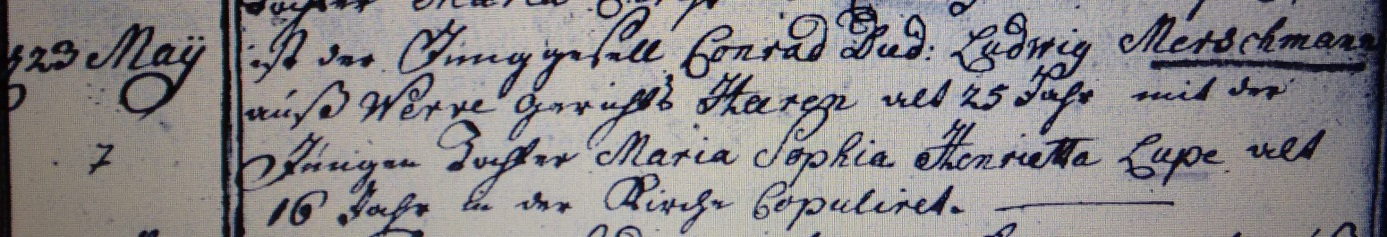 Tochter Maria
d 23 Maÿ ist der Junggesell Conrad Lud: Ludwig Merschmann
auß Werre Gerichts Haren alt 25 Jahr mit der
7 Jungen Tochter Maria Sophia Henrietta Lupe alt
16 Jahr in der Kirche Copuliret.